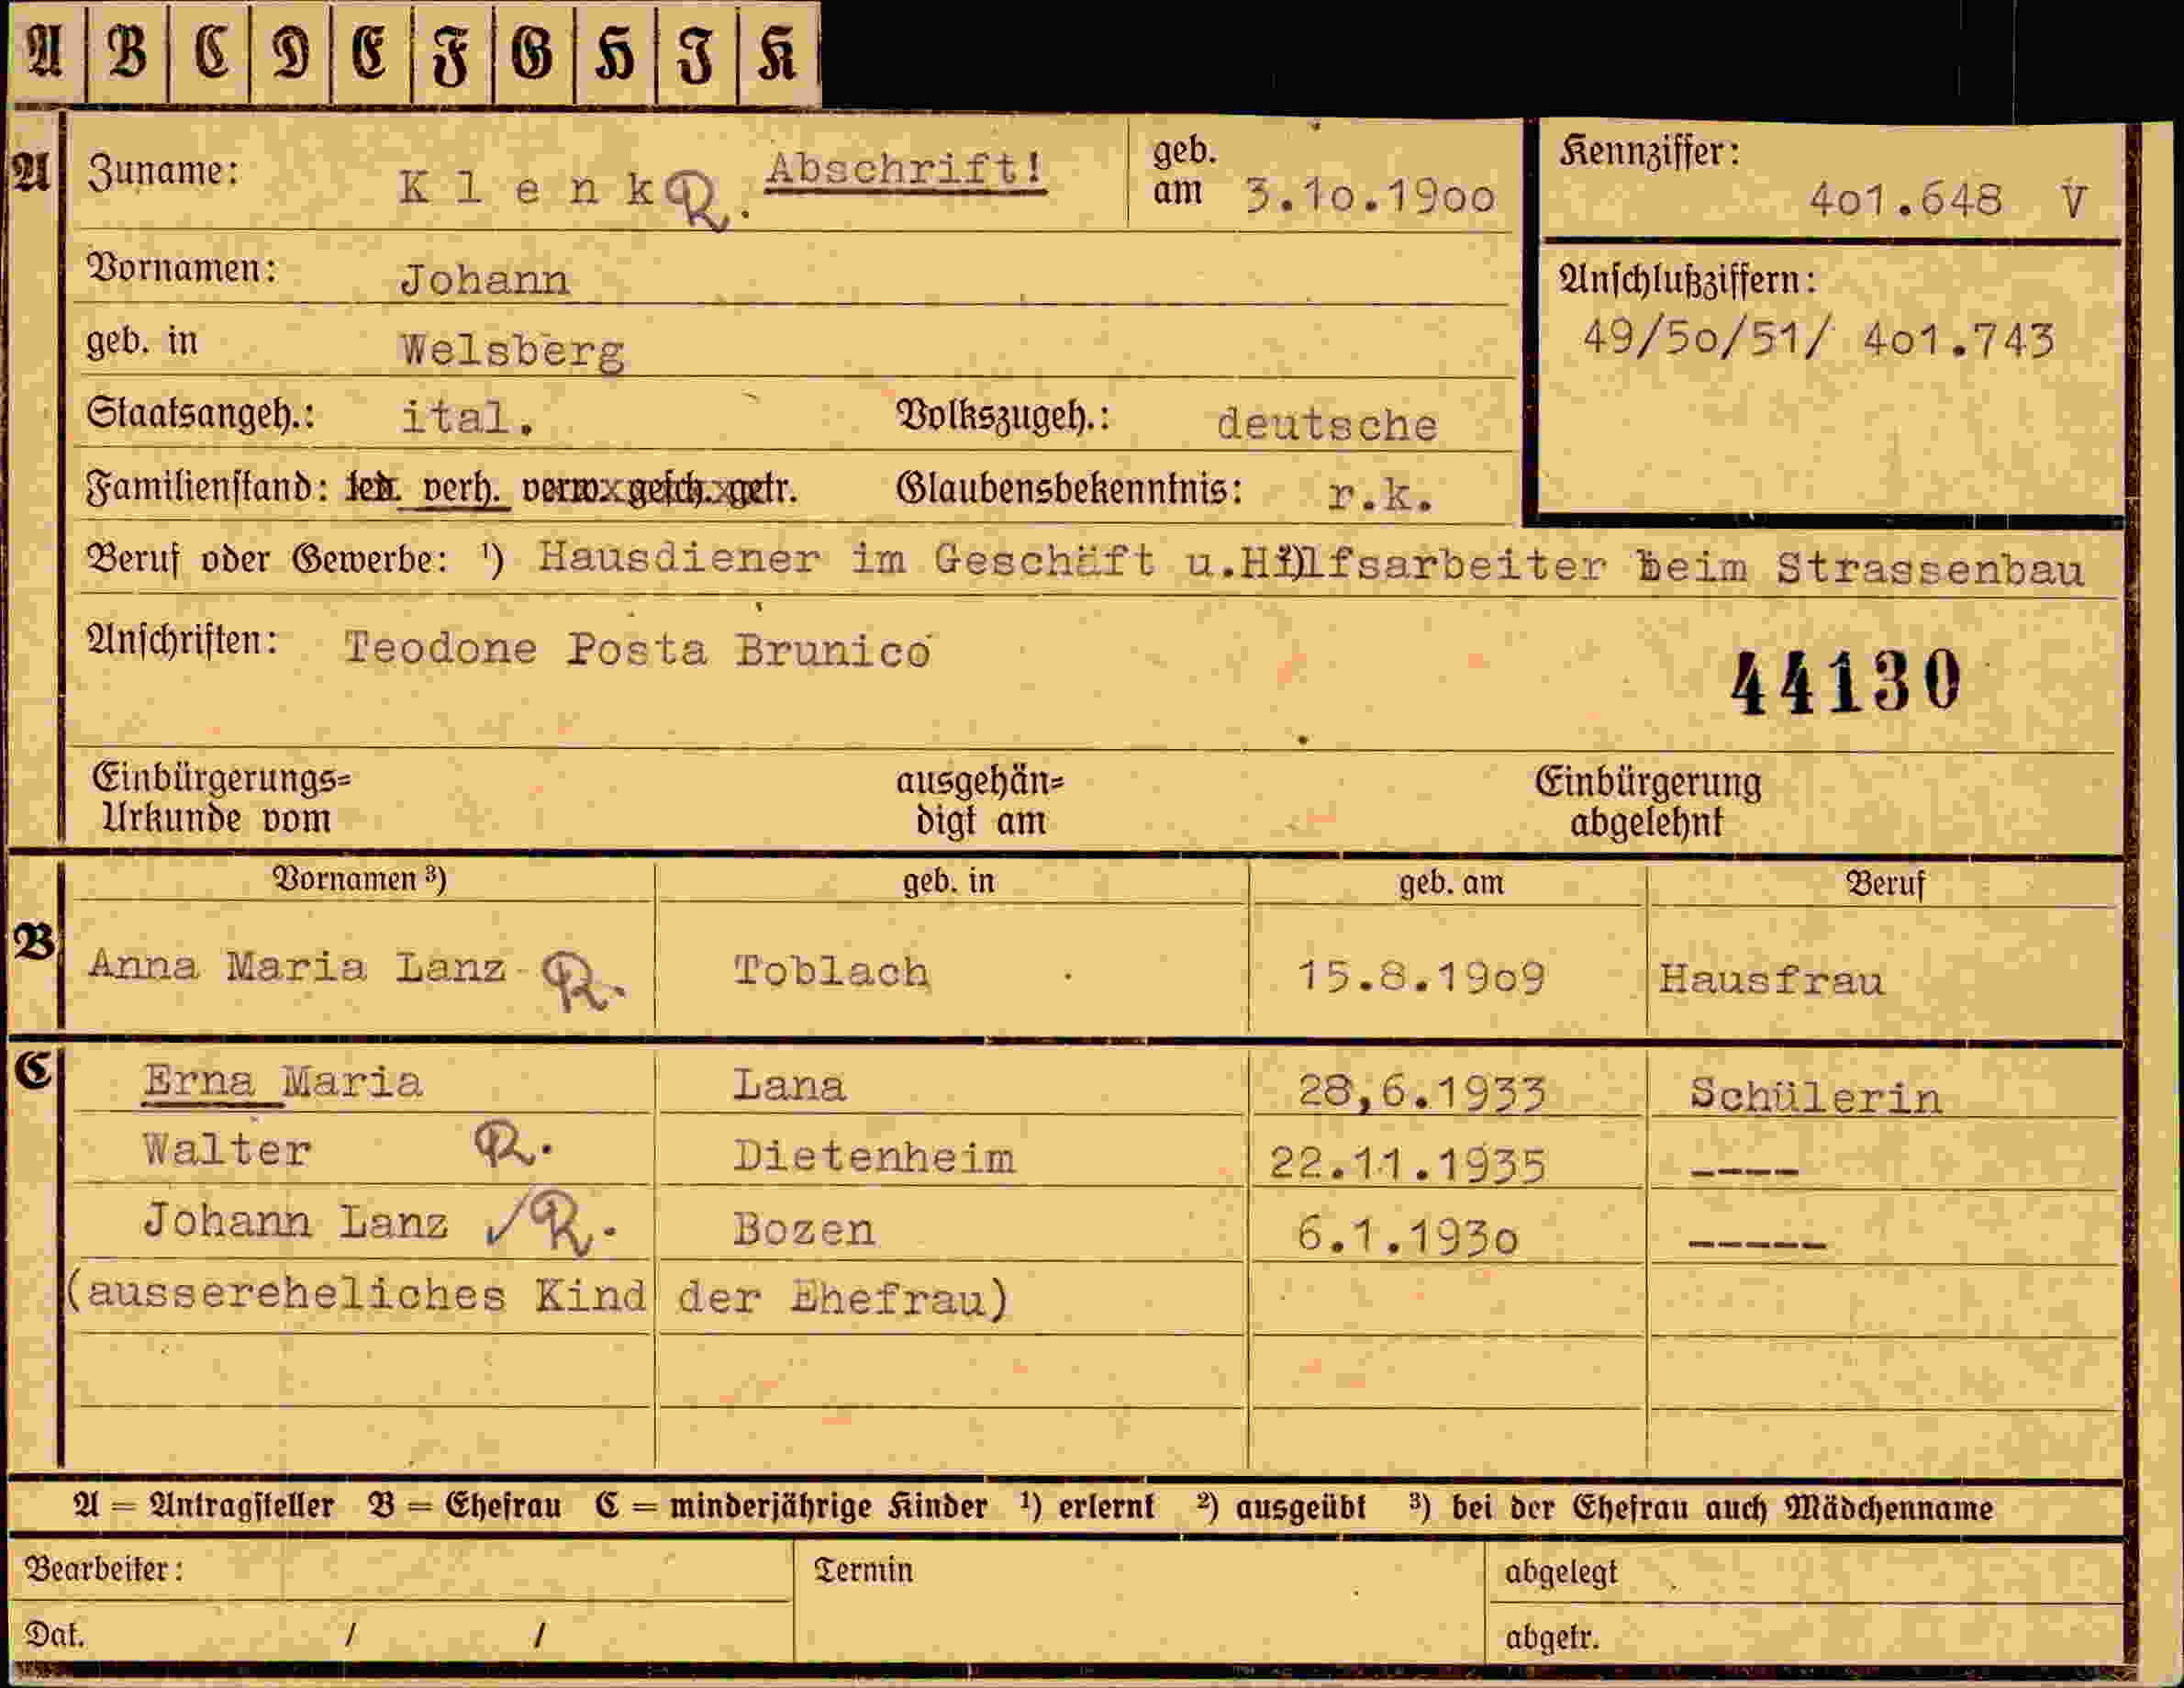 A B C D E F G H J K
A Zuname: Klenk R. Abschrift! geb. am 3.10.1900 Kennziffer: 401.648 V
Vornamen: Johann Anschlußziffern:
geb. in Welsberg 49/50/51/ 401.743
Staatsangeh.: ital. Volkszugeh.: deutsche
Familienstand: led. verh. verw. gesch. getr. Glaubensbekenntnis: r.k.
Beruf oder Gewerbe: ¹) Hausdiener im Geschäft u.Hilfsarbeiter beim Strassenbau
Anschriften: Teodone Posta Brunico
44130
Einbürgerungs= ausgehän= Einbürgerung
Urkunde vom digt am abgelehnt
Vornamen ³) geb. in geb. am Beruf
B Anna Maria Lanz R. Toblach 15.8.1909 Hausfrau
C Erna Maria Lana 28,6.1933 Schülerin
Walter R. Dietenheim 22.11.1935 ----
Johann Lanz ✓R. Bozen 6.1.1930 -----
(aussereheliches Kind der Ehefrau)
A = Antragsteller B = Ehefrau C = minderjährige Kinder ¹) erlernt ²) ausgeübt ³) bei der Ehefrau auch Mädchenname
Bearbeiter: Termin abgelegt
Dat. / / abgetr.